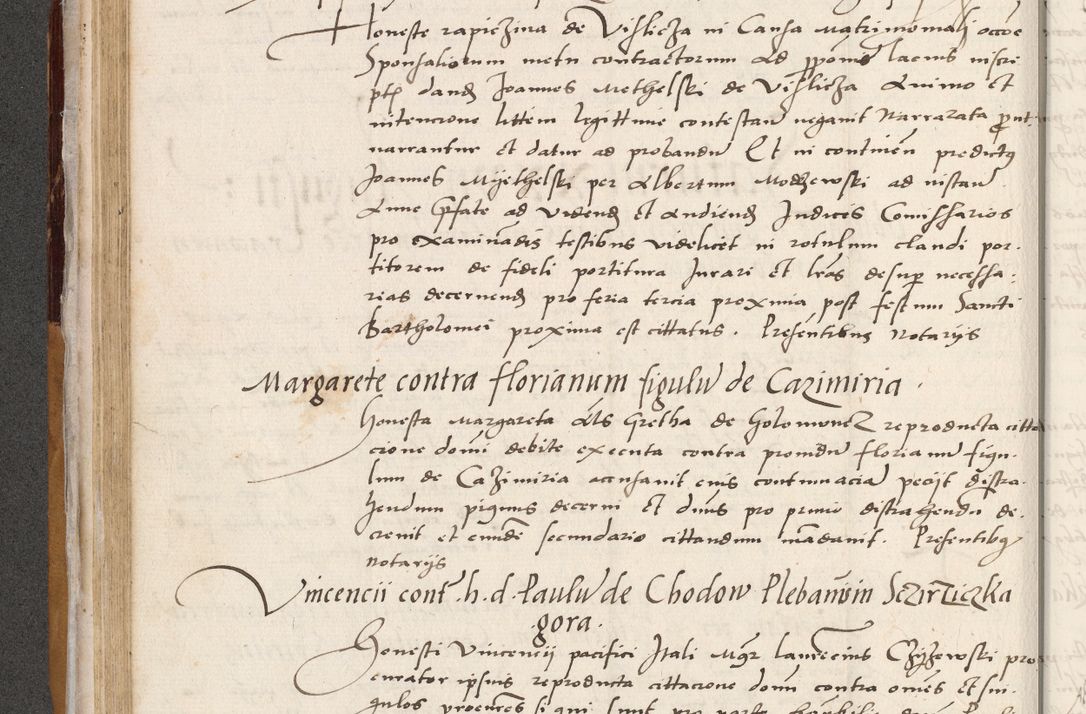 Honeste rapiczina de Vislicza in Causa Matrimoniali occoe
Sponsaliorum metu contractorum Ad proponis laeius inscri
pti dand Joannes Methelski de Vislicza Animo et
intencione littem legittime contestan negavit Narrata prout
narrantur et datur ad probandu Et in continen predictus
Joannes Myethelski per Albertum Modzewski ad instan
Anne Prefate ad videnD et AudienD Judices Comissarios
pro examinadis testibus videlicet in rotulum claudi por-
titorem de fideli portitura Jurari et lras desup necessa-
rias decernenD pro feria tercia proxima post festum Sancti
Bartholomei proxima est cittatus . Presentibus Notarys
Margarete contra florianum figulu de Cazimiria .
Honesta Margareta Als Gretha de Holomuncz reproducta citta
cione domi debite executa contra providu florianu figu-
lum de Cazimiria accusavit eius contumacia peciit distra-
hendum pignus decerni et dnus pro primo distrahendu de-
crevit et eunde secundario cittandum madavit . Presentibus
notarys
Vincencii cont .h.d. Paulu de Chodow Plebanum in Sczirziczka
.gora.
Honesti Vincencii pacifici Itali Mgr laurecius Czyzewski pro
curator ipsius reproducta cittacione domi contra omes et sin-
gulos proceres si qui sunt pro parte